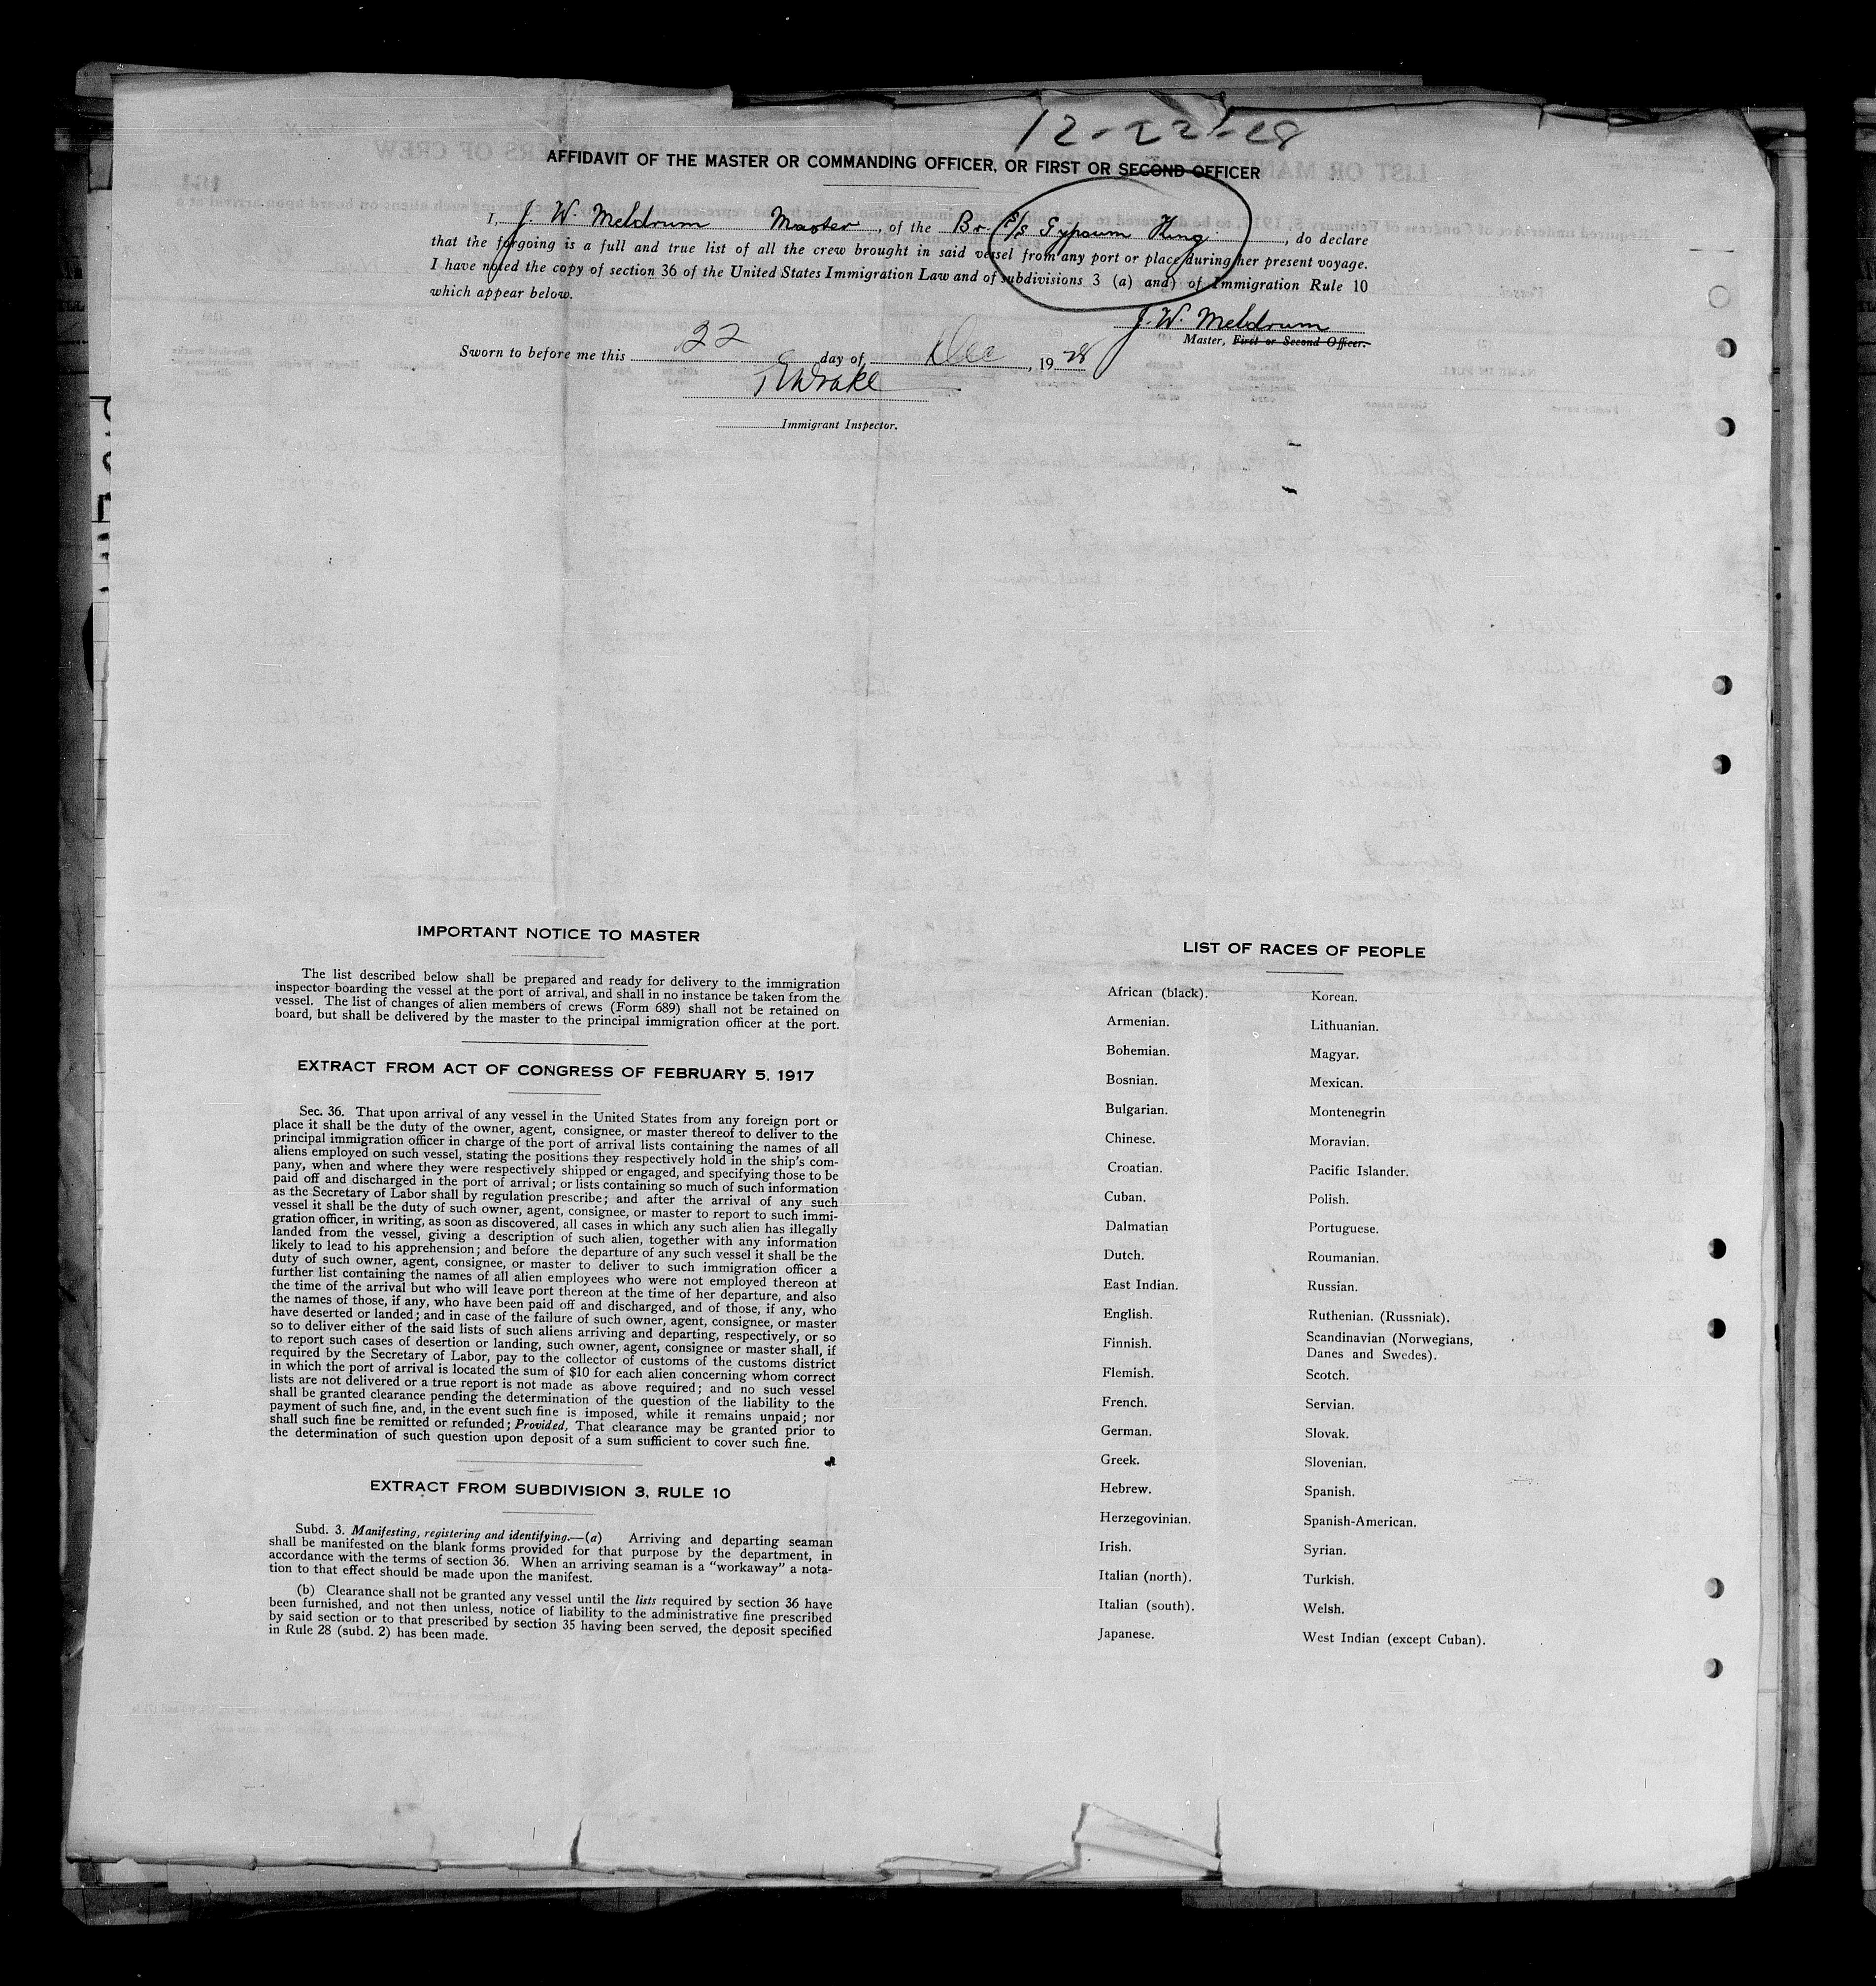 12-22-28
AFFIDAVIT OF THE MASTER OR COMMANDING OFFICER, OR FIRST OR SECOND OFFICER
I, J. W. Meldrum Master, of the Br. S/S Gypsum King, do declare
that the forgoing is a full and true list of all the crew brought in said vessel from any port or place during her present voyage.
I have noted the copy of section 36 of the United States Immigration Law and of subdivisions 3 (a) and) of Immigration Rule 10
which appear below.
J. W. Meldrum
Master, First or Second Officer.
Sworn to before me this 22 day of Dec, 19 28
Drake
Immigrant Inspector.
IMPORTANT NOTICE TO MASTER
The list described below shall be prepared and ready for delivery to the immigration
inspector boarding the vessel at the port of arrival, and shall in no instance be taken from the
vessel. The list of changes of alien members of crews (Form 689) shall not be retained on
board, but shall be delivered by the master to the principal immigration officer at the port.
EXTRACT FROM ACT OF CONGRESS OF FEBRUARY 5, 1917
Sec. 36. That upon arrival of any vessel in the United States from any foreign port or
place it shall be the duty of the owner, agent, consignee, or master thereof to deliver to the
principal immigration officer in charge of the port of arrival lists containing the names of all
aliens employed on such vessel, stating the positions they respectively hold in the ship's com-
pany, when and where they were respectively shipped or engaged, and specifying those to be
paid off and discharged in the port of arrival; or lists containing so much of such information
as the Secretary of Labor shall by regulation prescribe; and after the arrival of any such
vessel it shall be the duty of such owner, agent, consignee, or master to report to such immi-
gration officer, in writing, as soon as discovered, all cases in which any such alien has illegally
landed from the vessel, giving a description of such alien, together with any information
likely to lead to his apprehension; and before the departure of any such vessel it shall be the
duty of such owner, agent, consignee, or master to deliver to such immigration officer a
further list containing the names of all alien employees who were not employed thereon at
the time of the arrival but who will leave port thereon at the time of her departure, and also
the names of those, if any, who have been paid off and discharged, and of those, if any, who
have deserted or landed; and in case of the failure of such owner, agent, consignee, or master
so to deliver either of the said lists of such aliens arriving and departing, respectively, or so
to report such cases of desertion or landing, such owner, agent, consignee or master shall, if
required by the Secretary of Labor, pay to the collector of customs of the customs district
in which the port of arrival is located the sum of $10 for each alien concerning whom correct
lists are not delivered or a true report is not made as above required; and no such vessel
shall be granted clearance pending the determination of the question of the liability to the
payment of such fine, and, in the event such fine is imposed, while it remains unpaid; nor
shall such fine be remitted or refunded; Provided, That clearance may be granted prior to
the determination of such question upon deposit of a sum sufficient to cover such fine.
EXTRACT FROM SUBDIVISION 3, RULE 10
Subd. 3. Manifesting, registering and identifying.—(a) Arriving and departing seaman
shall be manifested on the blank forms provided for that purpose by the department, in
accordance with the terms of section 36. When an arriving seaman is a "workaway" a nota-
tion to that effect should be made upon the manifest.
(b) Clearance shall not be granted any vessel until the lists required by section 36 have
been furnished, and not then unless, notice of liability to the administrative fine prescribed
by said section or to that prescribed by section 35 having been served, the deposit specified
in Rule 28 (subd. 2) has been made.
LIST OF RACES OF PEOPLE
African (black).
Armenian.
Bohemian.
Bosnian.
Bulgarian.
Chinese.
Croatian.
Cuban.
Dalmatian
Dutch.
East Indian.
English.
Finnish.
Flemish.
French.
German.
Greek.
Hebrew.
Herzegovinian.
Irish.
Italian (north).
Italian (south).
Japanese.
Korean.
Lithuanian.
Magyar.
Mexican.
Montenegrin
Moravian.
Pacific Islander.
Polish.
Portuguese.
Roumanian.
Russian.
Ruthenian. (Russniak).
Scandinavian (Norwegians,
Danes and Swedes).
Scotch.
Servian.
Slovak.
Slovenian.
Spanish.
Spanish-American.
Syrian.
Turkish.
Welsh.
West Indian (except Cuban).